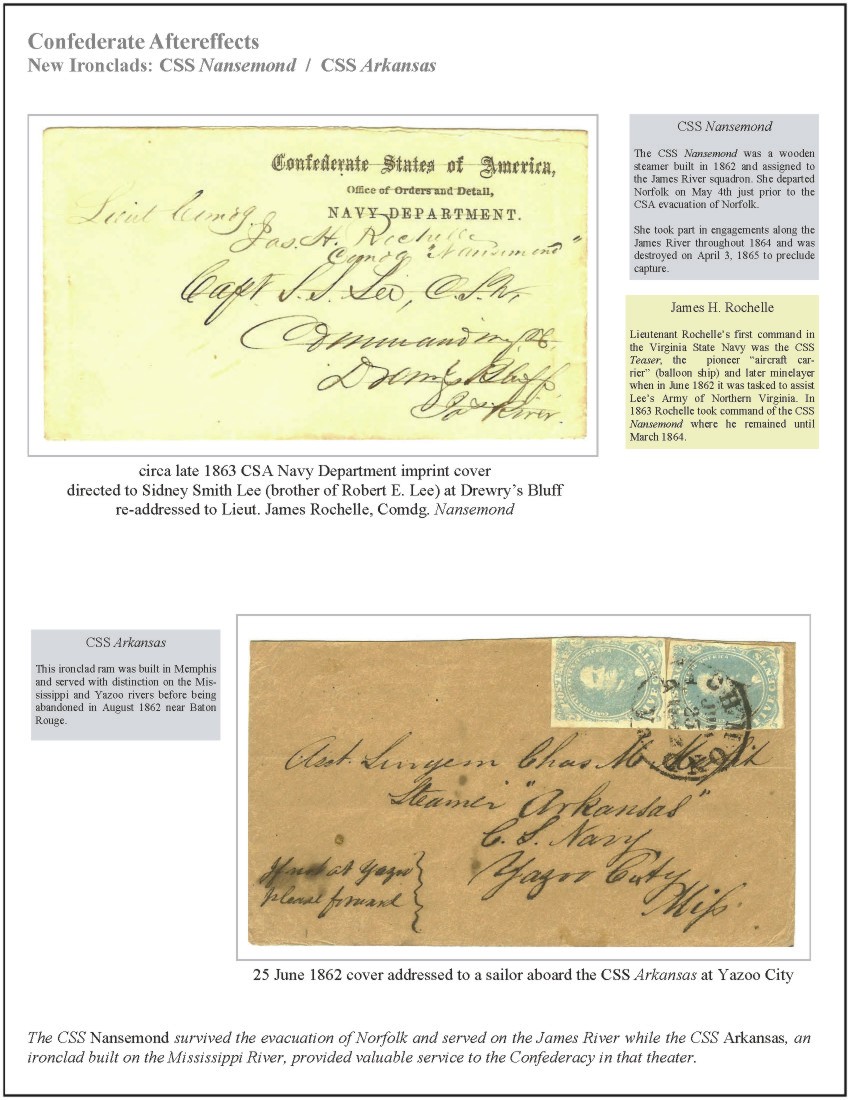 Confederate Aftereffects
New Ironclads: CSS Nansemond / CSS Arkansas
Confederate States of America,
Office of Orders and Detail,
NAVY DEPARTMENT.
Lieut Comdg.
Jas. H. Rochelle
Comdg "Nansemond"
Capt. S. S. Lee, C.S.N.
Commanding &c.
Drewry's Bluff
Jas River.
circa late 1863 CSA Navy Department imprint cover
directed to Sidney Smith Lee (brother of Robert E. Lee) at Drewry's Bluff
re-addressed to Lieut. James Rochelle, Comdg. Nansemond
CSS Nansemond
The CSS Nansemond was a wooden
steamer built in 1862 and assigned to
the James River squadron. She departed
Norfolk on May 4th just prior to the
CSA evacuation of Norfolk.
She took part in engagements along the
James River throughout 1864 and was
destroyed on April 3, 1865 to preclude
capture.
James H. Rochelle
Lieutenant Rochelle's first command in
the Virginia State Navy was the CSS
Teaser, the pioneer "aircraft car-
rier" (balloon ship) and later minelayer
when in June 1862 it was tasked to assist
Lee's Army of Northern Virginia. In
1863 Rochelle took command of the CSS
Nansemond where he remained until
March 1864.
CSS Arkansas
This ironclad ram was built in Memphis
and served with distinction on the Mis-
sissippi and Yazoo rivers before being
abandoned in August 1862 near Baton
Rouge.
RICHMOND
JUN
25
Asst. Surgeon Chas M.
Steamer "Arkansas"
C. S. Navy
Yazoo City
Miss.
If not at Yazoo
please forward
25 June 1862 cover addressed to a sailor aboard the CSS Arkansas at Yazoo City
The CSS Nansemond survived the evacuation of Norfolk and served on the James River while the CSS Arkansas, an
ironclad built on the Mississippi River, provided valuable service to the Confederacy in that theater.